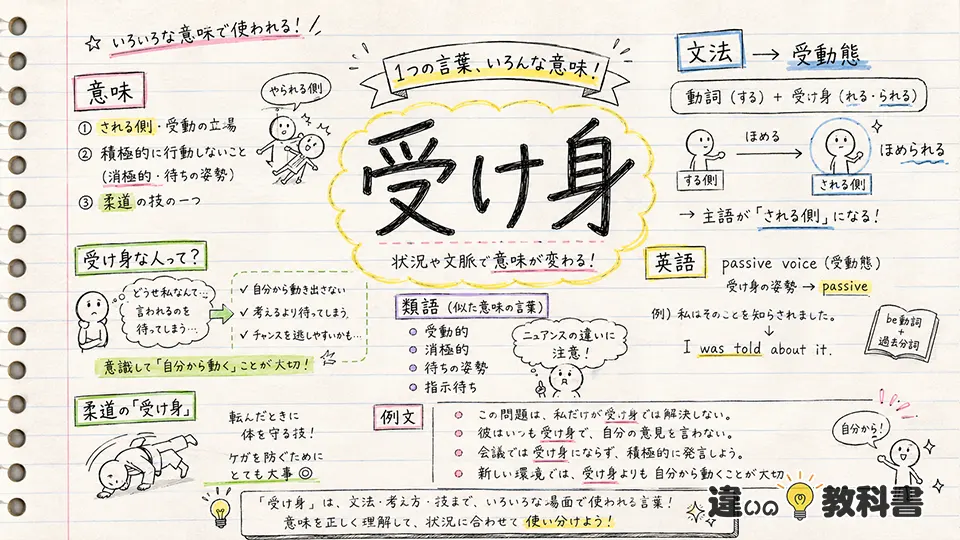 ☆ いろいろな意味で使われる!
意味
① される側・受動の立場
② 積極的に行動しないこと
(消極的・待ちの姿勢)
③ 柔道の技の一つ
やられる側
1つの言葉、いろんな意味!
受け身
状況や文脈で意味が変わる!
文法 → 受動態
動詞(する)+ 受け身(れる・られる)
ほめる
する側
される側
ほめられる
→ 主語が「される側」になる!
受け身な人って?
どうせ私なんて…
言われるのを
待ってしまう…
✓ 自分から動き出さない
✓ 考えるより待ってしまう
✓ チャンスを逃しやすいかも…
意識して「自分から動く」ことが大切!
類語(似た意味の言葉)
受動的
消極的
待ちの姿勢
指示待ち
ニュアンスの違いに
注意!
英語
passive voice(受動態)
受け身の姿勢 → passive
例)私はそのことを知らされました。
↓
I was told about it.
be動詞
+
過去分詞
柔道の「受け身」
転んだときに
体を守る技!
ケガを防ぐために
とても大事 ◎
例文
この問題は、私だけが受け身では解決しない。
彼はいつも受け身で、自分の意見を言わない。
会議では受け身にならず、積極的に発言しよう。
新しい環境では、受け身よりも自分から動くことが大切
自分から!
「受け身」は、文法・考え方・技まで、いろいろな場面で使われる言葉!
意味を正しく理解して、状況に合わせて使い分けよう!
違いの教科書